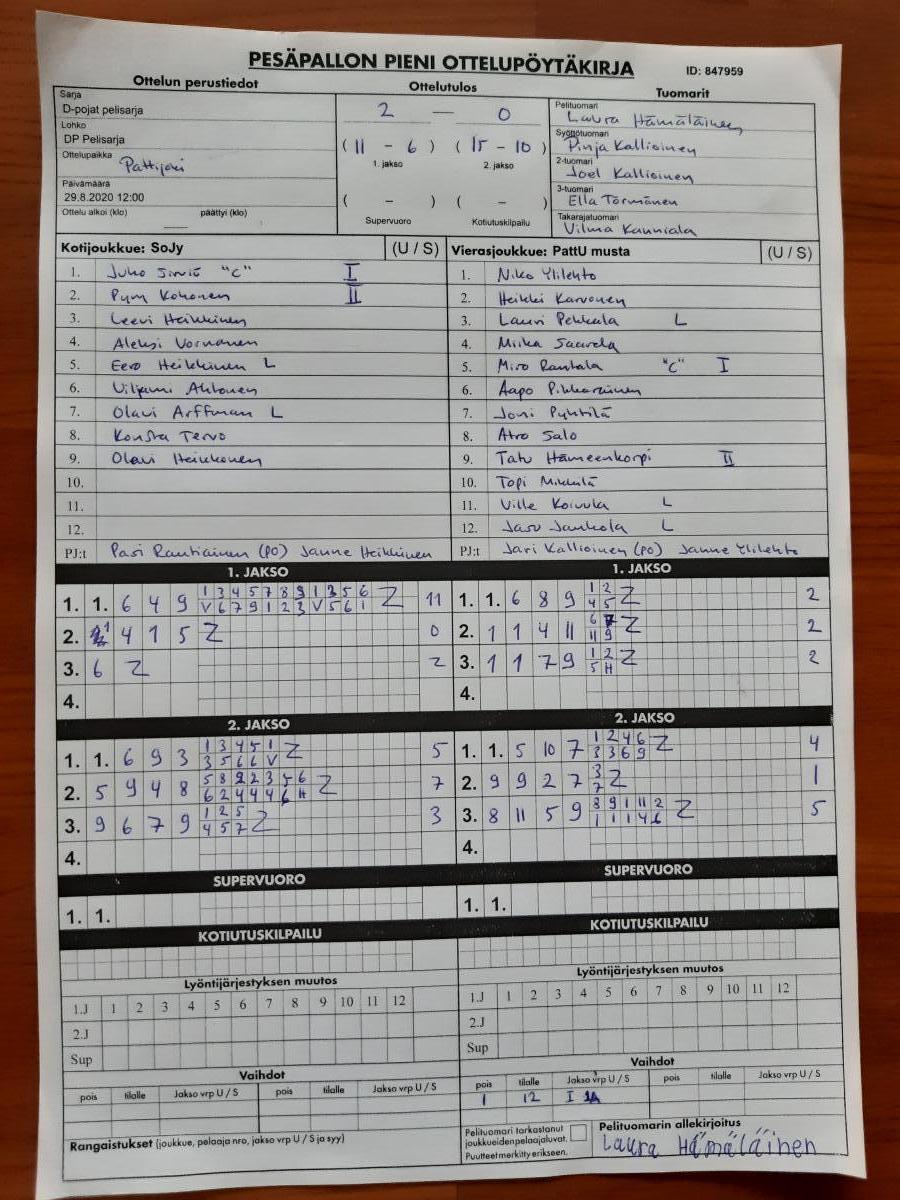 PESÄPALLON PIENI OTTELUPÖYTÄKIRJA
ID: 847959
Ottelun perustiedot
Sarja
D-pojat pelisarja
Lohko
DP Pelisarja
Ottelupaikka Pattijoki
Päivämäärä
29.8.2020 12:00
Ottelu alkoi (klo) päättyi (klo)
Ottelutulos
2 — 0
( 11 - 6 ) ( 15 - 10 )
1. jakso 2. jakso
( - ) ( - )
Supervuoro Kotiutuskilpailu
Tuomarit
Pelituomari
Laura Hämäläinen
Syöttötuomari
Pinja Kallioinen
2-tuomari
Joel Kallioinen
3-tuomari
Ella Törmänen
Takarajatuomari
Vilma Kanniala
Kotijoukkue: SoJy (U / S)
1. Juho Sirviö "C" I
2. Pyry Kokonen II
3. Leevi Heikkinen
4. Aleksi Vornanen
5. Eero Heikkinen L
6. Viljami Ahtonen
7. Olavi Arffman L
8. Konsta Tervo
9. Olavi Heikkonen
10.
11.
12.
PJ:t Pasi Rautiainen (PO) Janne Heikkinen
Vierasjoukkue: PattU musta (U / S)
1. Niko Ylilehto
2. Heikki Karvonen
3. Lauri Pekkala L
4. Miika Saarela
5. Miro Rantala "C" I
6. Aapo Pikkarainen
7. Joni Pyhtilä
8. Atro Salo
9. Tatu Hämeenkorpi II
10. Topi Mikkilä
11. Ville Koivula L
12. Jasu Jauhola L
PJ:t Jari Kallioinen (PO) Janne Ylilehto
1. JAKSO
1. 1. 6 4 9 1 3 4 5 7 8 9 1 3 5 6 Z 11
V 6 7 9 1 2 3 V 5 6 1
2. 4 1 5 Z 0
3. 6 Z 2
4.
1. JAKSO
1. 1. 6 8 9 1 2 Z 2
4 5
2. 1 1 4 11 6 7 Z 2
11 9
3. 1 1 7 9 1 2 Z 2
5 H
4.
2. JAKSO
1. 1. 6 9 3 1 3 4 5 1 Z 5
3 5 6 6 V
2. 5 9 4 8 5 8 2 2 3 5 6 Z 7
6 2 4 4 4 6 H
3. 9 6 7 9 1 2 5 Z 3
4 5 7
4.
2. JAKSO
1. 1. 5 10 7 1 2 4 6 Z 4
3 3 6 9
2. 9 9 2 7 3 Z 1
7
3. 8 11 5 9 8 9 1 11 2 Z 5
1 1 1 4 6
4.
SUPERVUORO
1. 1.
SUPERVUORO
1. 1.
KOTIUTUSKILPAILU
KOTIUTUSKILPAILU
Lyöntijärjestyksen muutos
1.J 1 2 3 4 5 6 7 8 9 10 11 12
2.J
Sup
Lyöntijärjestyksen muutos
1.J 1 2 3 4 5 6 7 8 9 10 11 12
2.J
Sup
Vaihdot
pois tilalle Jakso vrp U / S pois tilalle Jakso vrp U / S
Vaihdot
pois tilalle Jakso vrp U / S pois tilalle Jakso vrp U / S
1 12 I
Rangaistukset (joukkue, pelaaja nro, jakso vrp U / S ja syy)
Pelituomari tarkastanut
joukkueiden pelaajaluvat.
Puutteet merkitty erikseen.
Pelituomarin allekirjoitus
Laura Hämäläinen